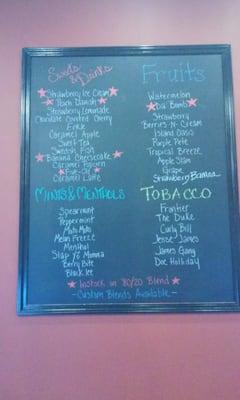 Sweets & Drinks
Strawberry Ice Cream
Peach Danish
Strawberry Lemonade
Chocolate Covered Cherry
Caramel Apple
Sweet Tea
Swedish Fish
Banana Cheesecake
Caramel Popcorn
Caramel Latte
MINTS & MENTHOLS
Spearmint
Peppermint
Melon Freeze
Menthol
Slap Yo Momma
Berry Bite
Black Ice
Fruits
Watermelon
Da' Bomb
Strawberry
Berries-N-Cream
Island Oasis
Purple Pete
Tropical Breeze
Apple Slam
Grape
Strawberry Banana
TOBACCO
Frontier
The Duke
Curly Bill
Jesse James
James Gang
Doc Holliday
Instock in 80/20 Blend
-Custom Blends Available-